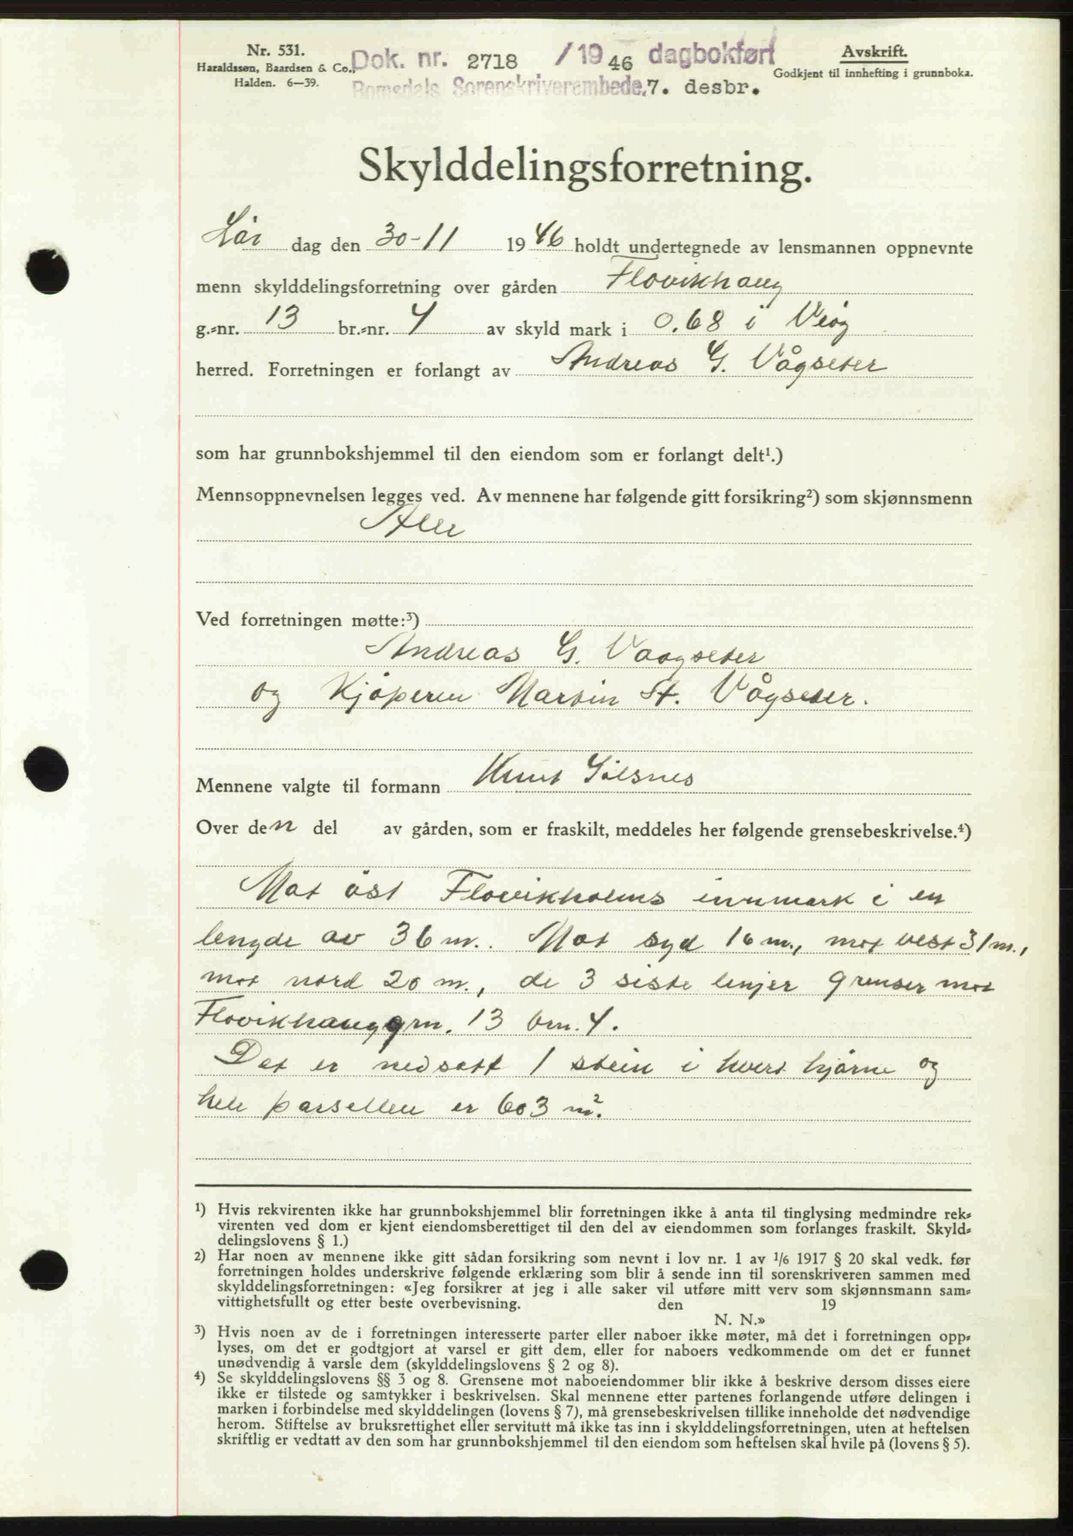 Nr. 531.
Haraldssøn, Baardsen & Co.,
Halden. 6—39.
Dok. nr. 2718 /19 46 dagbokført
Romsdals Sorenskriverembede, 7. desbr.
Avskrift.
Godkjent til innhefting i grunnboka.
Skylddelingsforretning.
Lør dag den 30-11 19 46 holdt undertegnede av lensmannen oppnevnte
menn skylddelingsforretning over gården Flovikhaug
g.-nr. 13 br.-nr. 4 av skyld mark i 0.68 i Veøy
herred. Forretningen er forlangt av Andreas G. Vågseter
som har grunnbokshjemmel til den eiendom som er forlangt delt¹.)
Mennsoppnevnelsen legges ved. Av mennene har følgende gitt forsikring²) som skjønnsmenn
Alle
Ved forretningen møtte:³)
Andreas G. Vaagseter
og Kjøperen Martin A. Vågseter.
Mennene valgte til formann Knut Sølsnes
Over den del av gården, som er fraskilt, meddeles her følgende grensebeskrivelse.⁴)
Mot øst Flovikholms innmark i en
lengde av 36 m. Mot syd 16 m., mot vest 31 m.,
mot nord 20 m., de 3 siste linjer grenser mot
Flovikhaug grn. 13 brn. 4.
Det er nedsatt 1 stein i hvert hjørne og
hele parsellen er 603 m².
¹) Hvis rekvirenten ikke har grunnbokshjemmel blir forretningen ikke å anta til tinglysing medmindre rek-
virenten ved dom er kjent eiendomsberettiget til den del av eiendommen som forlanges fraskilt. Skyld-
delingslovens § 1.)
²) Har noen av mennene ikke gitt sådan forsikring som nevnt i lov nr. 1 av 1/6 1917 § 20 skal vedk. før
forretningen holdes underskrive følgende erklæring som blir å sende inn til sorenskriveren sammen med
skylddelingsforretningen: «Jeg forsikrer at jeg i alle saker vil utføre mitt verv som skjønnsmann sam-
vittighetsfullt og etter beste overbevisning. den 19
N. N.»
³) Hvis noen av de i forretningen interesserte parter eller naboer ikke møter, må det i forretningen opp-
lyses, om det er godtgjort at varsel er gitt dem, eller for naboers vedkommende om det er funnet
unødvendig å varsle dem (skylddelingslovens § 2 og 8).
⁴) Se skylddelingslovens §§ 3 og 8. Grensene mot naboeiendommer blir ikke å beskrive dersom disses eiere
ikke er tilstede og samtykker i beskrivelsen. Skal mennene etter partenes forlangende utføre delingen i
marken i forbindelse med skylddelingen (lovens § 7), må grensebeskrivelsen tillike inneholde det nødvendige
herom. Stiftelse av bruksrettighet eller servitutt må ikke tas inn i skylddelingsforretningen, uten at heftelsen
skriftlig er vedtatt av den som har grunnbokshjemmel til den eiendom som heftelsen skal hvile på (lovens § 5).